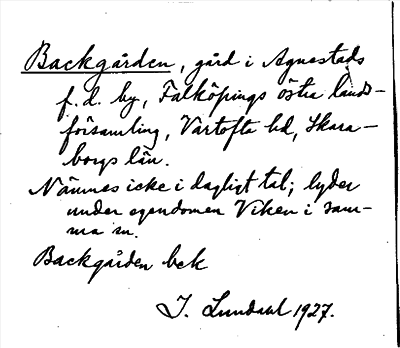 Backgården, gård i Agnestads
f. d. by, Falköpings östra lands-
församling, Vartofta hd, Skara-
borgs län.
Nämnes icke i dagligt tal; lyder
under egendomen Viken i sam-
ma sn.
Backgården bek
J. Lundahl 1927.